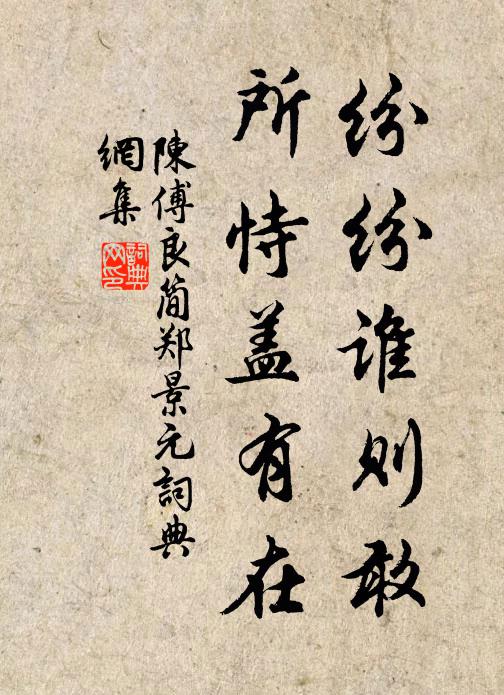 纷纷谁则敢
所恃盖有在
陳傅良简郑景元詞典
網集
詞典
网印